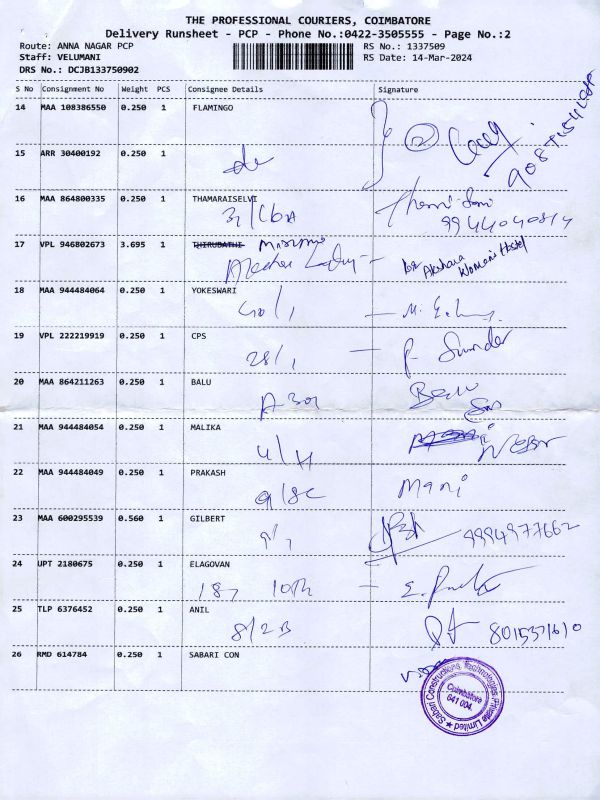 THE PROFESSIONAL COURIERS, COIMBATORE
Delivery Runsheet - PCP - Phone No.:0422-3505555 - Page No.:2
Route: ANNA NAGAR PCP RS No.: 1337509
Staff: VELUMANI RS Date: 14-Mar-2024
DRS No.: DCJB133750902
S No Consignment No Weight PCS Consignee Details Signature
14 MAA 108386550 0.250 1 FLAMINGO
15 ARR 30400192 0.250 1
16 MAA 864800335 0.250 1 THAMARAISELVI
9944040814
17 VPL 946802673 3.695 1 THIRUPATHI
for Akshara Women's Hostel
18 MAA 944484064 0.250 1 YOKESWARI
40/1
19 VPL 222219919 0.250 1 CPS
28/1 P. Sunder
20 MAA 864211263 0.250 1 BALU
A 301 Balu
21 MAA 944484054 0.250 1 MALIKA
4/H
22 MAA 944484049 0.250 1 PRAKASH
9/8C Mani
23 MAA 600295539 0.560 1 GILBERT
9994977662
24 UPT 2180675 0.250 1 ELAGOVAN
187 10th
25 TLP 6376452 0.250 1 ANIL
8/2B 8015371610
26 RMD 614784 0.250 1 SABARI CON
Sabari Constructions Technologies Private Limited
Coimbatore
641 004.